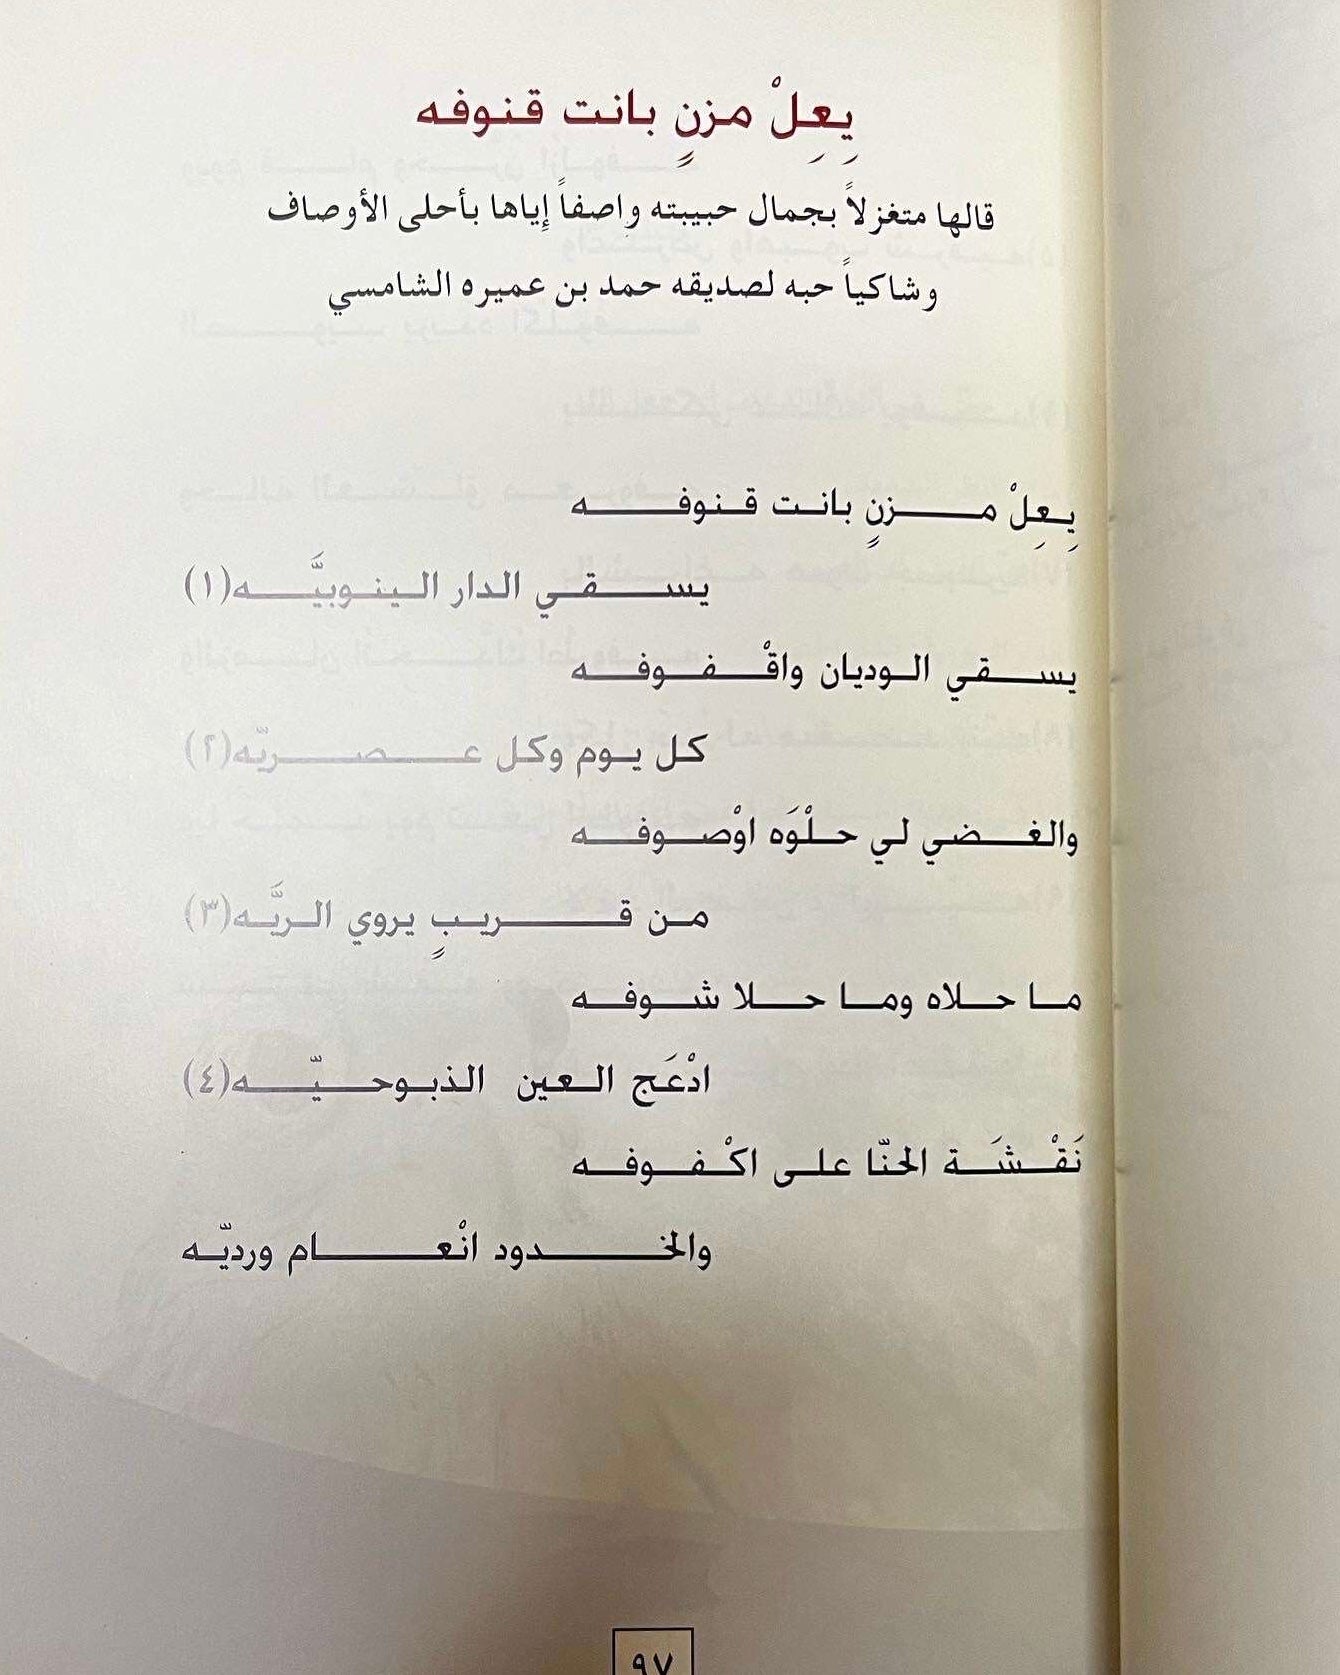 يِعِلْ مزنٍ بانت قنوفه
قالها متغزلاً بجمال حبيبته واصفاً إياها بأحلى الأوصاف
وشاكياً حبه لصديقه حمد بن عميره الشامسي
يِعِلْ مزنٍ بانت قنوفه
يسقي الدار الينوبيَّه(١)
يسقي الوديان واقْفوفه
كل يوم وكل عصريّه(٢)
والغضي لي حلْوَه اوْصوفه
من قريبٍ يروي الريَّه(٣)
ما حلاه وما حلا شوفه
ادْعَج العين الذبوحيّه(٤)
نَقْشَة الحنّا على اكْفوفه
والخدود انْعام ورديّه
٩٧